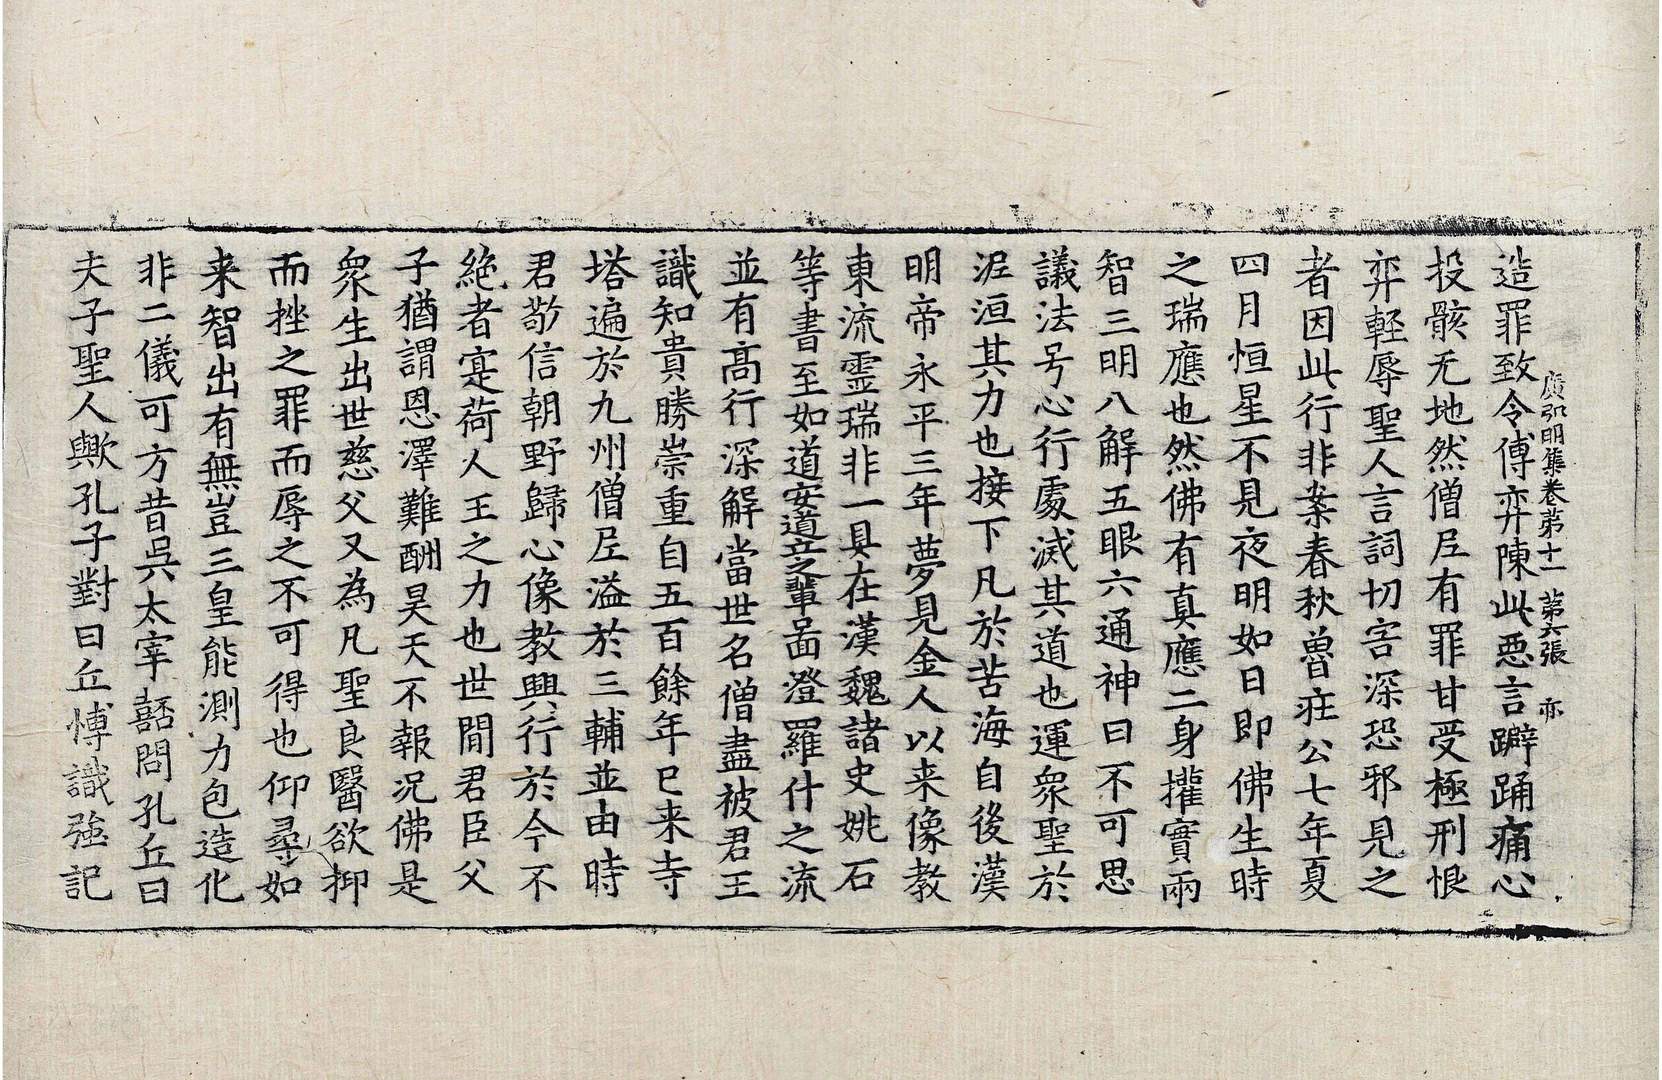 廣弘明集卷苐十一 苐六張 亦
造罪致令傅弈陳此惡言躃踊痛心
投骸无地然僧尼有罪甘受極刑恨
弈輕辱聖人言詞切害深恐邪見之
者因此行非案春秋魯莊公七年夏
四月恒星不見夜明如日即佛生時
之瑞應也然佛有真應二身權實兩
智三明八解五眼六通神曰不可思
議法号心行處滅其道也運衆聖於
泥洹其力也接下凡於苦海自後漢
明帝永平三年夢見金人以来像教
東流霊瑞非一具在漢魏諸史姚石
等書至如道安道立之輩啚澄羅什之流
並有高行深解當世名僧盡被君王
識知貴勝崇重自五百餘年已来寺
塔遍於九州僧尼溢於三輔並由時
君敬信朝野歸心像教興行於今不
絶者寔荷人王之力也世間君臣父
子猶謂恩澤難酬昊天不報况佛是
衆生出世慈父又為凡聖良醫欲抑
而挫之罪而辱之不可得也仰尋如
来智出有無豈三皇能測力包造化
非二儀可方昔吳太宰嚭問孔丘曰
夫子聖人歟孔子對曰丘愽識強記